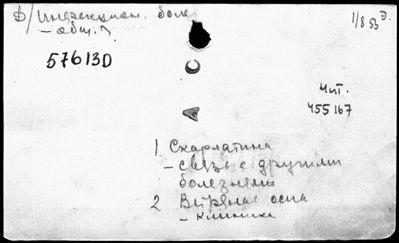 Д/Инфекцион. боле
- общ.
1/8 53
57613D
Чит.
455167
1 Скарлатина
- связь с другими
болезнями
2 Ветряная оспа
- клиника